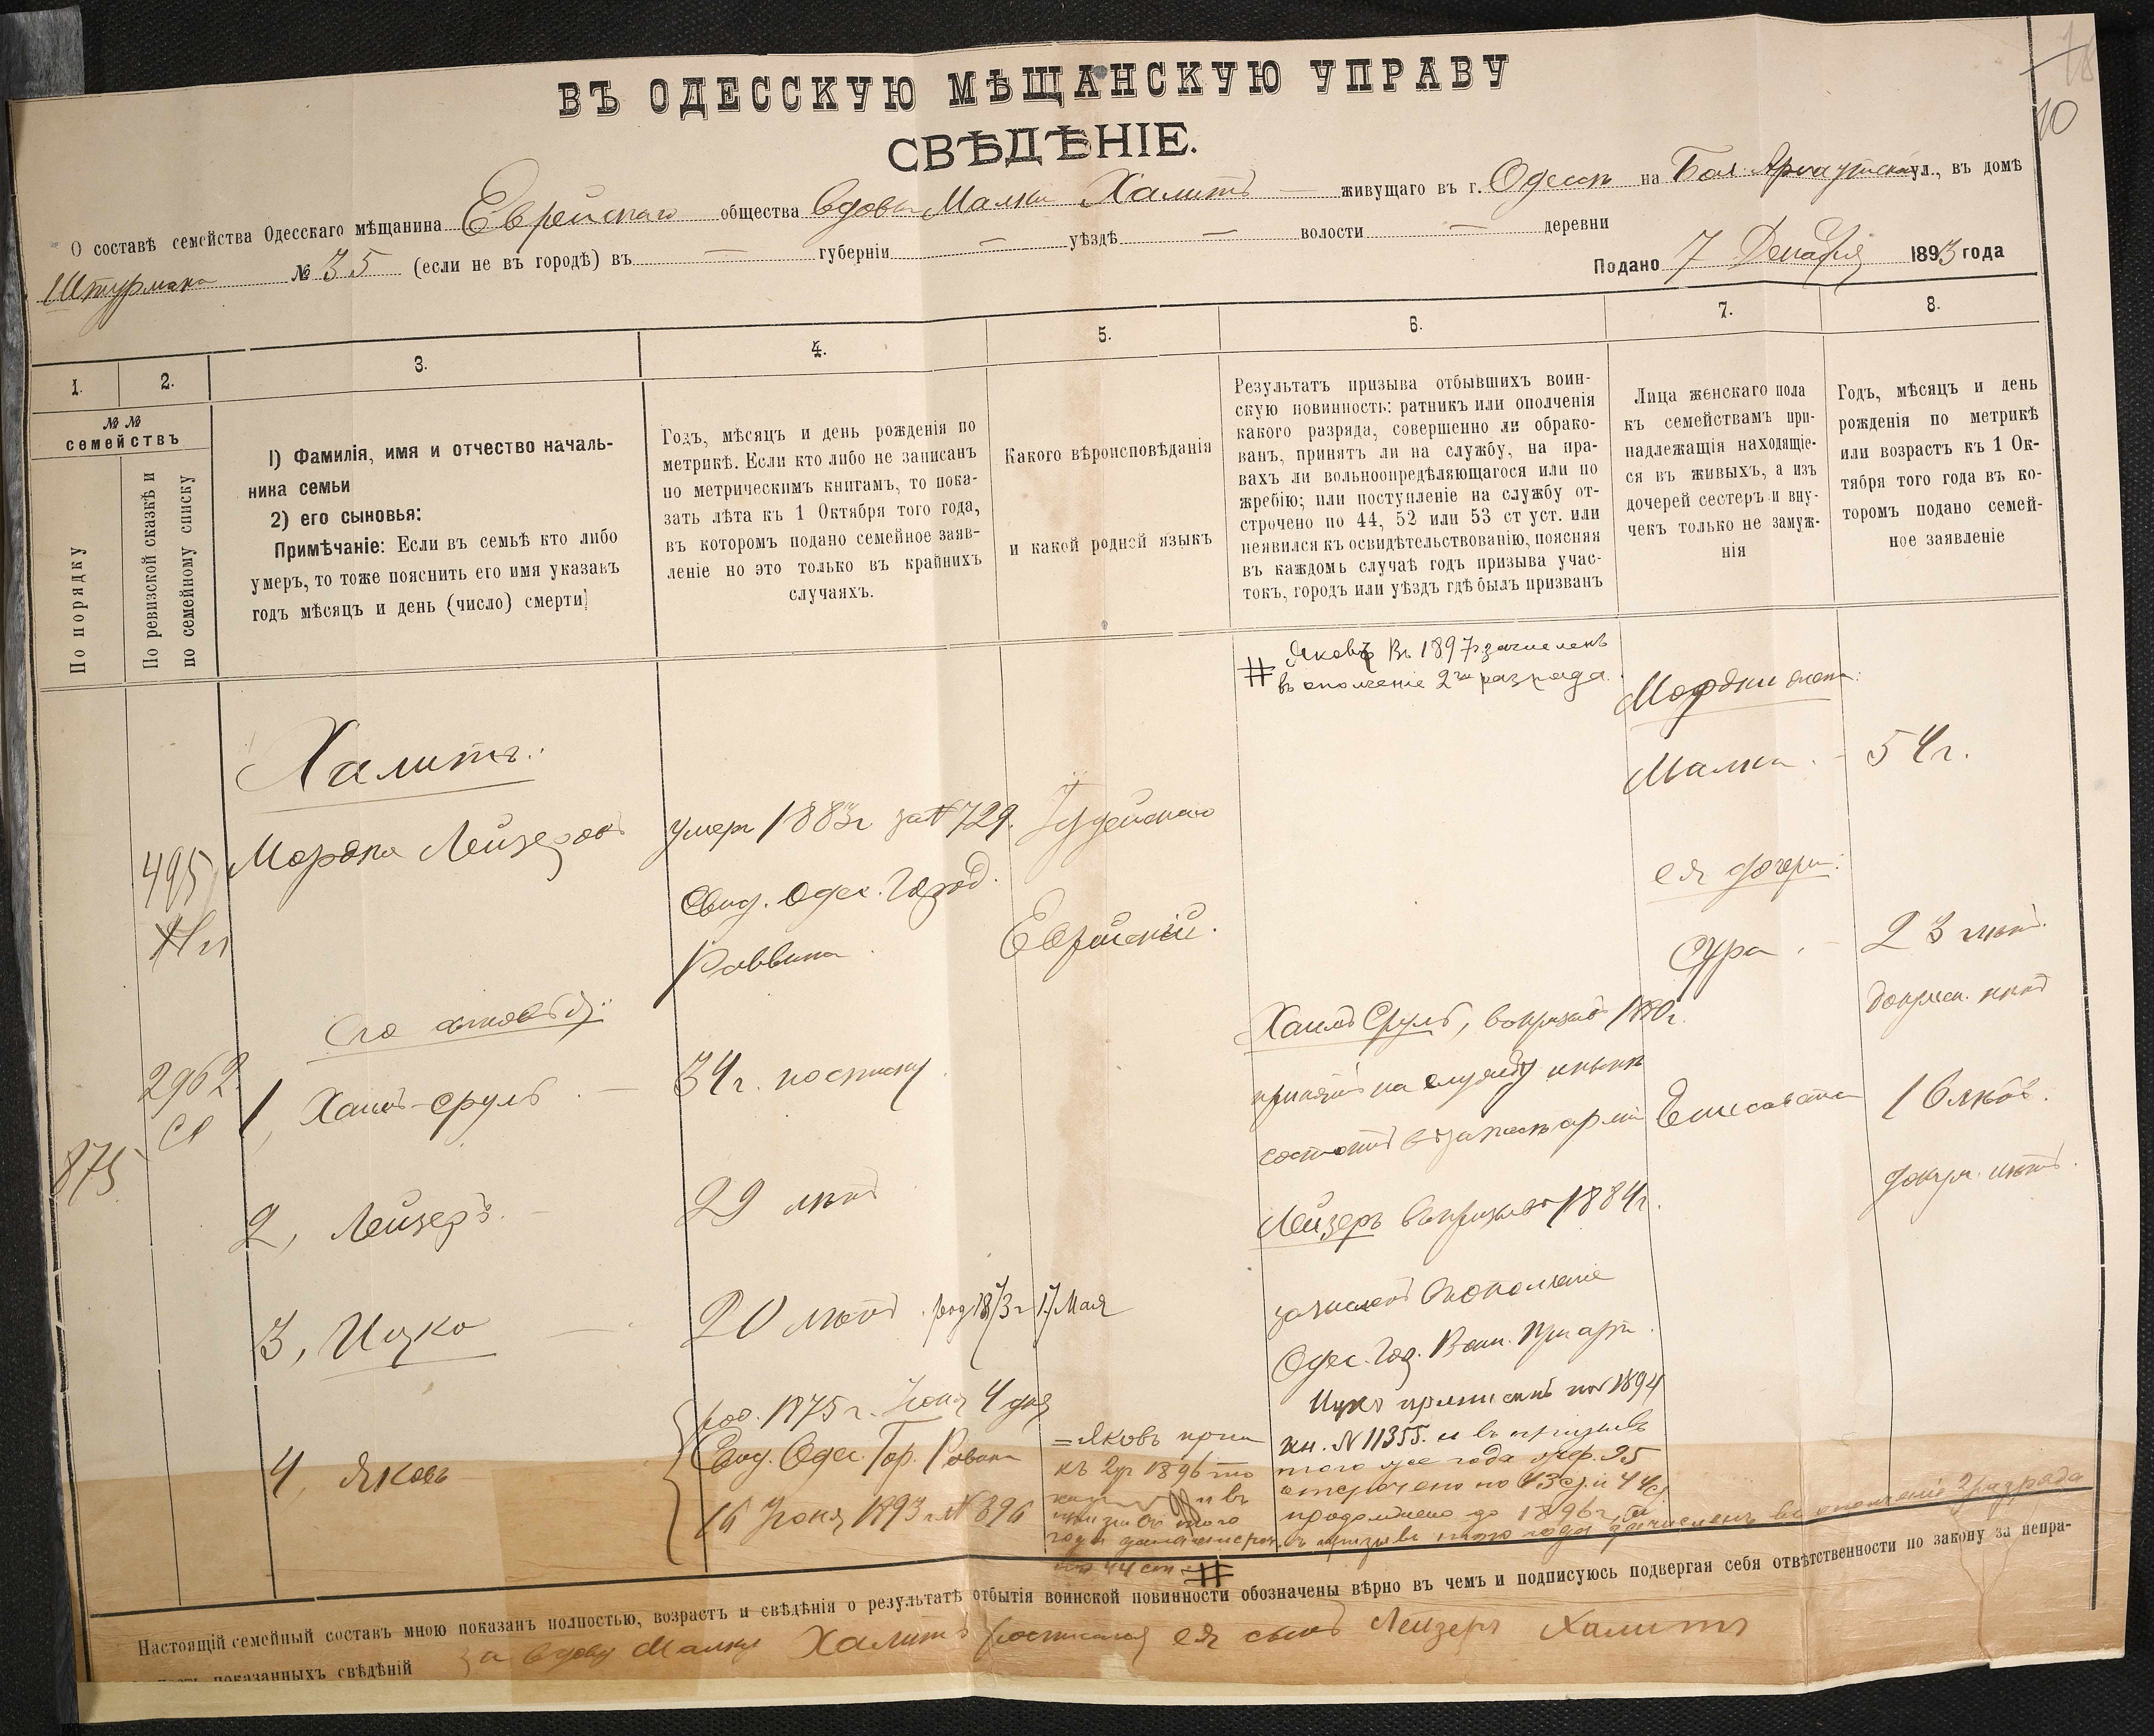 ВЪ ОДЕССКУЮ МѢЩАНСКУЮ УПРАВУ
СВѢДѢНІЕ.
10
О составѣ семейства Одесскаго мѣщанина Еврейскаго общества вдовы Малки Халитъ — живущаго въ г. Одессѣ на Бол. Арнаутской ул., въ домѣ
Штурмана № 35 (если не въ городѣ) въ — губерніи — уѣздѣ — волости — деревни
Подано 7 Декабря 1893 года
1.
2.
3.
4.
5.
6.
7.
8.
№ №
семействъ
По порядку
По ревизской сказкѣ и
по семейному списку
1) Фамилія, имя и отчество началь-
ника семьи
2) его сыновья:
Примѣчаніе: Если въ семьѣ кто либо
умеръ, то тоже пояснить его имя указавъ
годъ мѣсяцъ и день (число) смерти
Годъ, мѣсяцъ и день рожденія по
метрикѣ. Если кто либо не записанъ
по метрическимъ книгамъ, то пока-
зать лѣта къ 1 Октября того года,
въ которомъ подано семейное заяв-
леніе но это только въ крайнихъ
случаяхъ.
Какого вѣроисповѣданія
и какой родной языкъ
Результатъ призыва отбывшихъ воин-
скую повинность: ратникъ или ополченія
какого разряда, совершенно ли обрако-
ванъ, принятъ ли на службу, на пра-
вахъ ли вольноопредѣляющагося или по
жребію; или поступленіе на службу от-
строчено по 44, 52 или 53 ст уст. или
неявился къ освидѣтельствованію, поясняя
въ каждомъ случаѣ годъ призыва учас-
токъ, городъ или уѣздъ гдѣ былъ призванъ
Лица женскаго пола
къ семействамъ при-
надлежащія находящіе-
ся въ живыхъ, а изъ
дочерей сестеръ и вну-
чекъ только не замуж-
нія
Годъ, мѣсяцъ и день
рожденія по метрикѣ
или возрастъ къ 1 Ок-
тября того года въ ко-
торомъ подано семей-
ное заявленіе
# Яковъ Въ 1897 г. зачисленъ
въ ополченіе 2го разряда.
Мордки жена:
Халитъ:
Малка. - 54 г.
495 Мордко Лейзеровъ умеръ 1883 г за № 729. Іудейскаго
ея дочери:
Свид. Одес. Город.
Раввина. Еврейскій.
Сура. - 23 лѣтъ.
Его сыновья:
Хаимъ Сруль, въ призывъ 1880 г.
2962
1, Хаимъ-Сруль. — 34 г. по списку.
принятъ на службу и нынѣ
состоитъ въ запасѣ арміи
Елисавета 16 лѣтъ.
875
2, Лейзеръ. - 29 лѣтъ
Лейзеръ въ призывъ 1884 г.
зачисленъ въ ополченіе
3, Ицко — 20 лѣтъ. род 1873 г 17 Мая
Одес. Гор. Воин. Прис.
Ицко приписанъ по 1894
4, Яковъ
род. 1875 г. Іюня 4 дня
Свид. Одес. Гор. Раввина
16 Іюня 1893 г. № 896
= Яковъ прип
къ 2 уч 1896
и въ
призывъ того
года дана отсроч.
по 44 ст. #
уч. № 11355. и въ призывъ
того же года
отсрочено по 43 ст. и 44 ст
продолжено до 1896 г.
въ призывъ того года зачисленъ въ ополченіе 2 разряда
Настоящій семейный составъ мною показанъ полностью, возрастъ и свѣдѣнія о результатѣ отбытія воинской повинности обозначены вѣрно въ чемъ и подписуюсь подвергая себя отвѣтственности по закону за непра-
показанныхъ свѣдѣній за вдову Малку Халитъ росписался ея сынъ Лейзеръ Халитъ